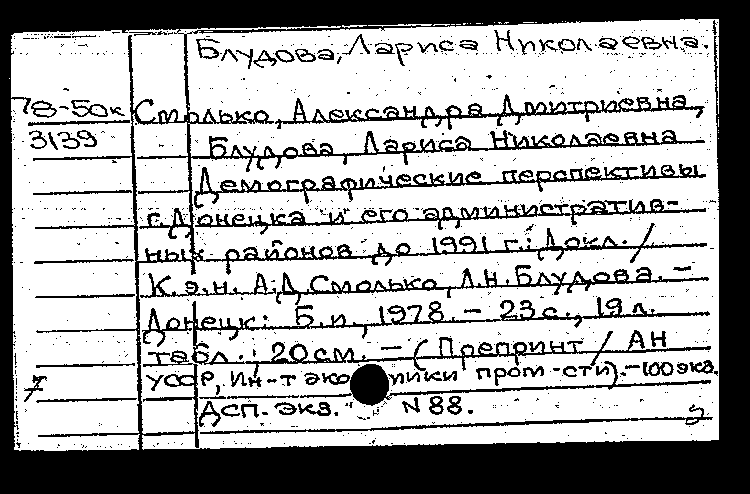 Блудова, Лариса Николаевна.
78-50к Смолько, Александра Дмитриевна,
3139 Блудова, Лариса Николаевна
Демографические перспективы
г. Донецка и его административ-
ных районов до 1991 г.: Докл. /
К.э.н. А.Д. Смолько, Л.Н. Блудова. -
Донецк: Б.и., 1978. - 23 с., 19 л.
табл.; 20 см. - (Препринт / АН
7 УССР, Ин-т эко мики пром-сти). - 100 экз.
Дсп. экз. N 88.